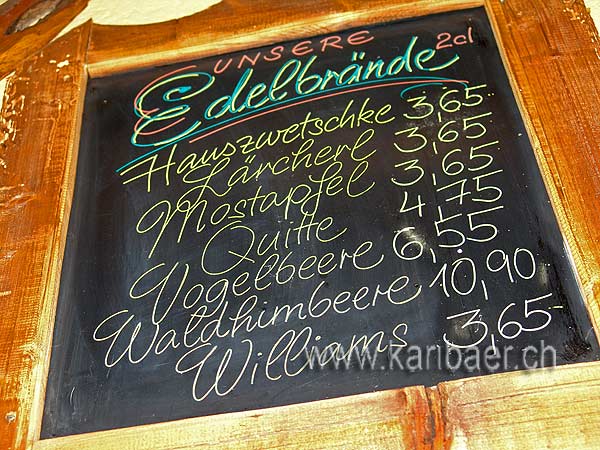 UNSERE
Edelbrände 2cl
Hauszwetschke 3,65
Lärcherl 3,65
Mostapfel 3,65
Quitte 4,75
Vogelbeere 6,55
Waldhimbeere 10,90
Williams 3,65
www.karibaer.ch